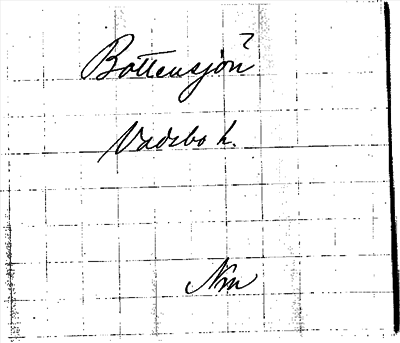 Bottensjön?
Vadsbo h.
Nm